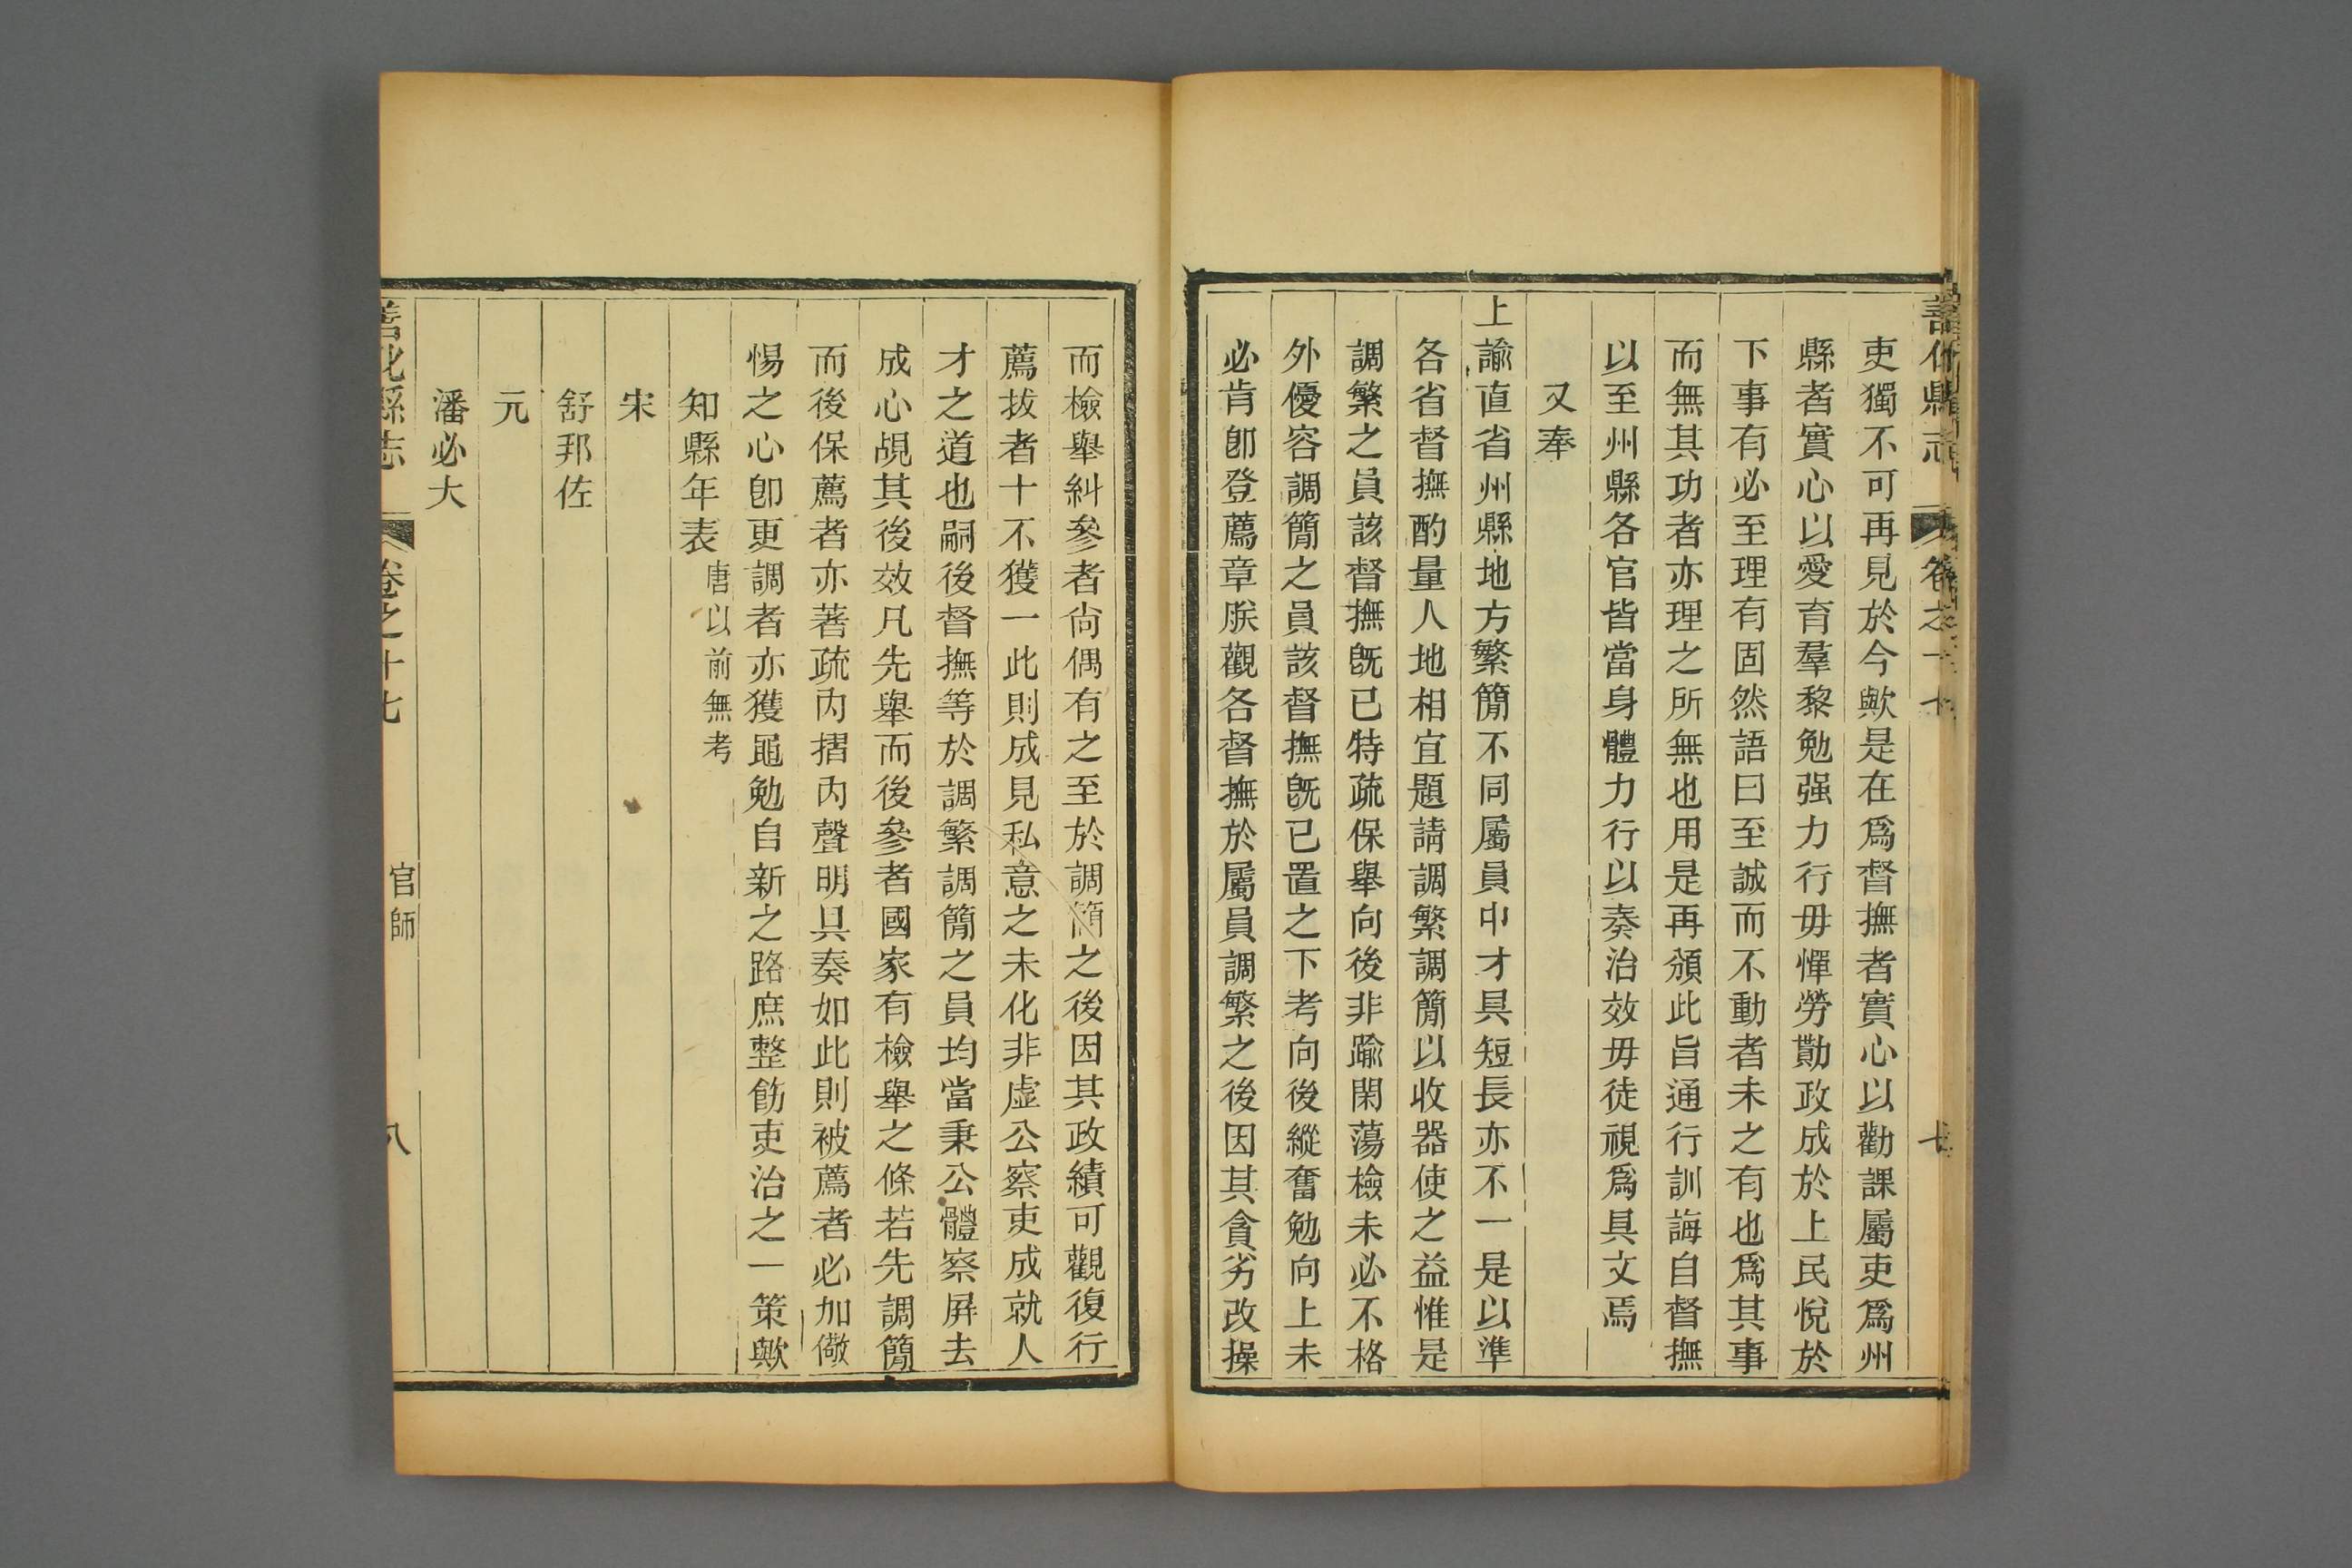 善化縣志 卷之十七 七
吏獨不可再見於今歟是在爲督撫者實心以勸課屬吏爲州
縣者實心以愛育羣黎勉强力行毋憚勞勩政成於上民悅於
下事有必至理有固然語曰至誠而不動者未之有也爲其事
而無其功者亦理之所無也用是再頒此旨通行訓誨自督撫
以至州縣各官皆當身體力行以奏治效毋徒視爲具文焉
又奉
上諭直省州縣地方繁簡不同屬員中才具短長亦不一是以準
各省督撫酌量人地相宜題請調繁調簡以收器使之益惟是
調繁之員該督撫旣已特疏保舉向後非踰閑蕩檢未必不格
外優容調簡之員該督撫旣已置之下考向後縱奮勉向上未
必肯卽登薦章朕觀各督撫於屬員調繁之後因其貪劣改操
而檢舉糾參者尙偶有之至於調簡之後因其政績可觀復行
薦拔者十不獲一此則成見私意之未化非虛公察吏成就人
才之道也嗣後督撫等於調繁調簡之員均當秉公體察屛去
成心覘其後效凡先舉而後參者國家有檢舉之條若先調簡
而後保薦者亦著疏內摺內聲明具奏如此則被薦者必加儆
惕之心卽更調者亦獲黽勉自新之路庶整飭吏治之一策歟
知縣年表 唐以前無考
宋
舒邦佐
元
潘必大
善化縣志 卷之十七 官師 八